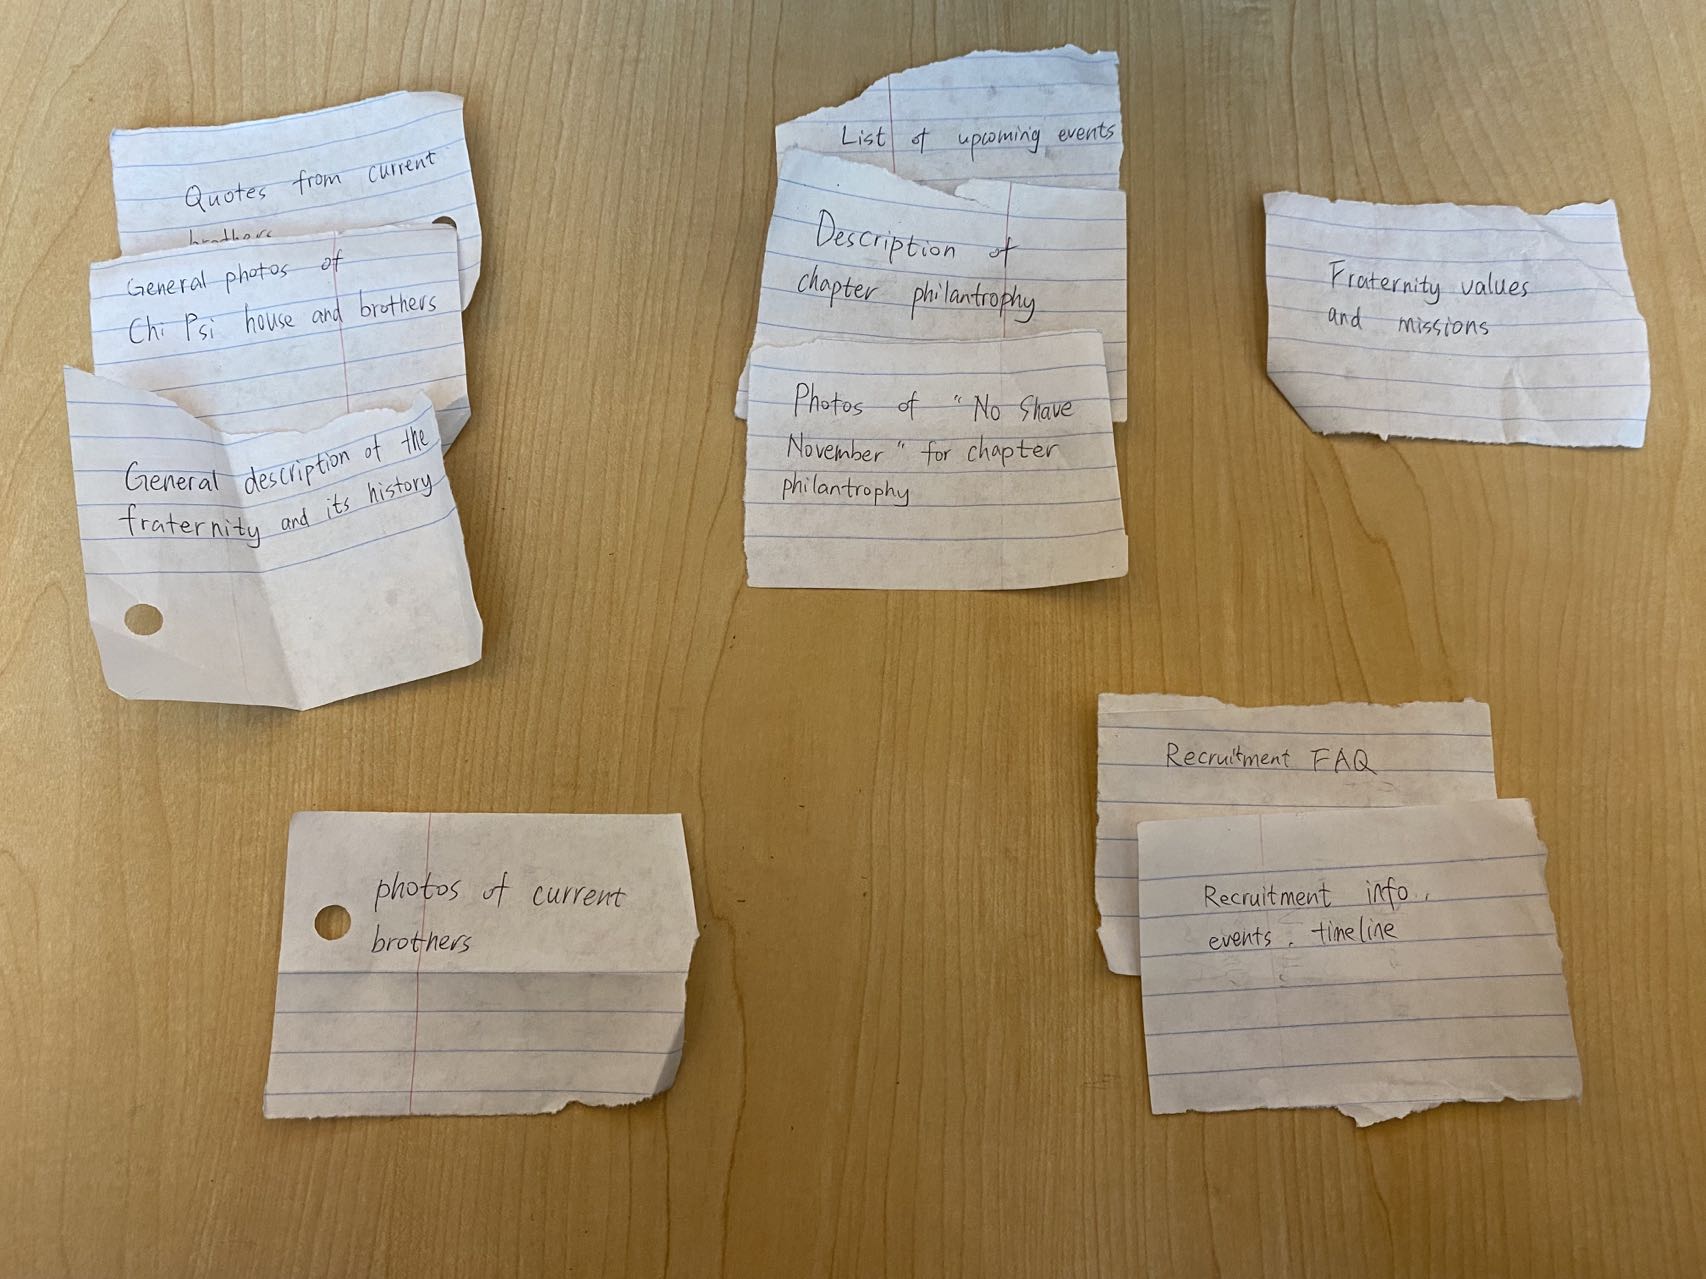 Quotes from current
brothers
General photos of
Chi Psi house and brothers
General description of the
fraternity and its history
List of upcoming events
Description of
chapter philantrophy
Photos of "No Shave
November" for chapter
philantrophy
Fraternity values
and missions
photos of current
brothers
Recruitment FAQ
Recruitment info,
events, timeline